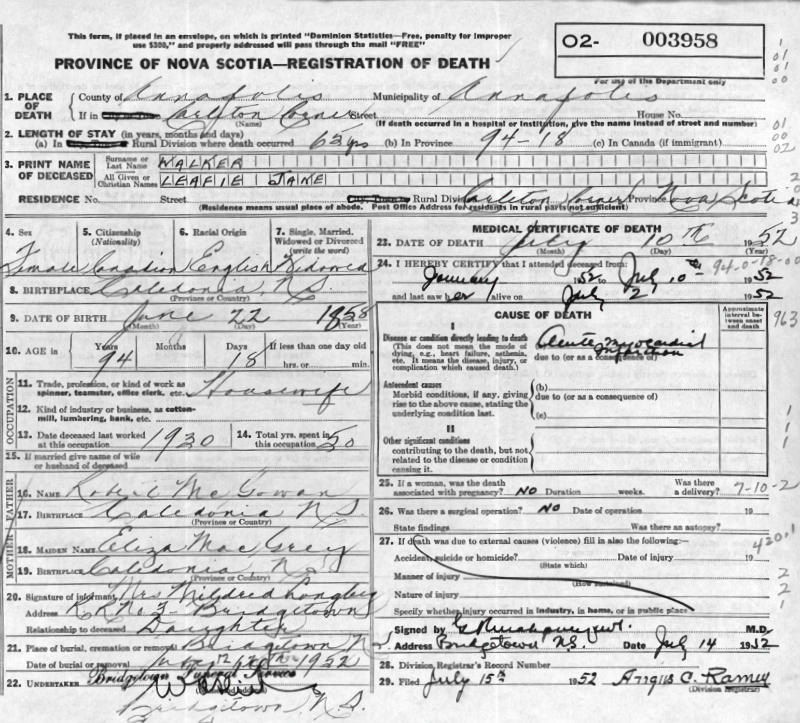 This form, if placed in an envelope, on which is printed "Dominion Statistics—Free, penalty for improper
use $300," and properly addressed will pass through the mail "FREE"
O2- 003958
For use of the Department only
PROVINCE OF NOVA SCOTIA—REGISTRATION OF DEATH
1. PLACE OF DEATH County of Annapolis Municipality of Annapolis
If in Carleton Corner Street House No.
(Name) (If death occurred in a hospital or institution, give the name instead of street and number)
2. LENGTH OF STAY (in years, months and days)
(a) In Rural Division where death occurred 63 yrs (b) In Province 94-18 (c) In Canada (if immigrant)
3. PRINT NAME OF DECEASED Surname or Last Name WALKER
All Given or Christian Names LEAFIE JANE
RESIDENCE No. Street City, Town or Rural Division Carleton Corner Province Nova Scotia
(Residence means usual place of abode. Post Office Address for residents in rural parts not sufficient)
4. Sex 5. Citizenship (Nationality) 6. Racial Origin 7. Single, Married, Widowed or Divorced (write the word)
Female Canadian English Widowed
8. BIRTHPLACE Caledonia, N.S.
(Province or Country)
9. DATE OF BIRTH June 22 1858
(Month) (Day) (Year)
10. AGE in Years Months Days If less than one day old
94 18 hrs. or min.
OCCUPATION
11. Trade, profession, or kind of work as spinner, teamster, office clerk, etc. Housewife
12. Kind of industry or business, as cotton-mill, lumbering, bank, etc.
13. Date deceased last worked at this occupation 1930 14. Total yrs. spent in this occupation 50
15. If married give name of wife or husband of deceased
MOTHER - FATHER
16. NAME Robert McGowan
17. BIRTHPLACE Caledonia N S
(Province or Country)
18. MAIDEN NAME Eliza Mac Grey
19. BIRTHPLACE Caledonia N S
(Province or Country)
20. Signature of informant Mrs Mildred
Address R R No 3 - Bridgetown
Relationship to deceased Daughter
21. Place of burial, cremation or removal Bridgetown N
Date of burial or removal 12 1952
22. UNDERTAKER Bridgetown Funeral Service
Bridgetown, N.S.
MEDICAL CERTIFICATE OF DEATH
23. DATE OF DEATH July 10th 1952
(Month) (Day) (Year)
24. I HEREBY CERTIFY that I attended deceased from:
January 1952 to July 10th 1952
94-0-18-00
and last saw her alive on July 2 1952
CAUSE OF DEATH Approximate interval between onset and death
963
I
Disease or condition directly leading to death Acute Myocardial Infarction
(This does not mean the mode of dying, e.g., heart failure, asthenia, etc. It means the disease, injury, or complication which caused death.) due to (or as a consequence of)
Antecedent causes (b)
Morbid conditions, if any, giving rise to the above cause, stating the underlying condition last. due to (or as a consequence of)
(c)
II
Other significant conditions
contributing to the death, but not related to the disease or condition causing it.
25. If a woman, was the death associated with pregnancy? NO Duration weeks. Was there a delivery? 7-10-2
26. Was there a surgical operation? NO Date of operation 19
State findings Was there an autopsy?
27. If death was due to external causes (violence) fill in also the following:— 420.1
Accident, suicide or homicide? Date of injury 19
(State which)
Manner of injury
(How sustained)
Nature of injury
Specify whether injury occurred in industry, in home, or in public place
Signed by M.D.
Address Bridgetown N.S. Date July 14 1952
28. Division Registrar's Record Number
29. Filed July 15th 1952 Angus C. Ramey
(Division Registrar)